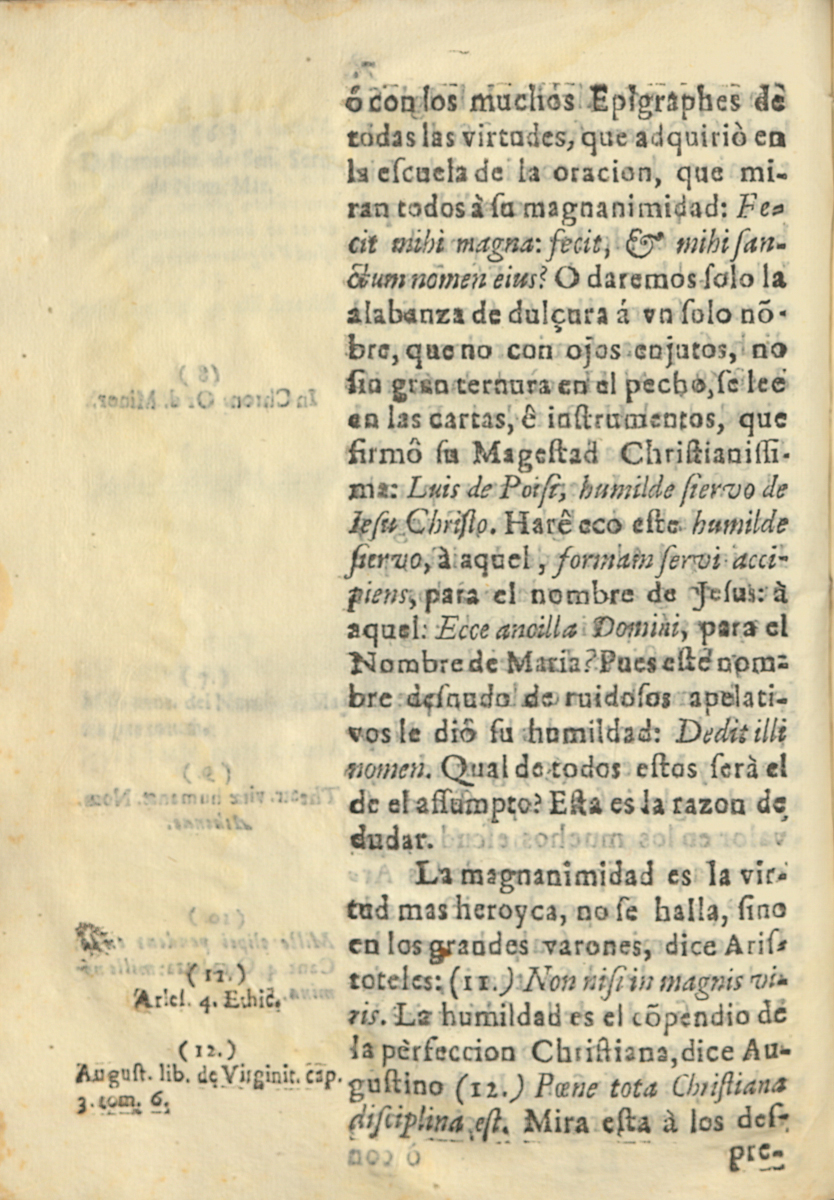 ó con los muchos Epigraphes de
todas las virtudes, que adquiriò en
la eſcuela de la oracion, que mi-
ran todos à ſu magnanimidad: Fe-
cit mihi magna: fecit, & mihi ſan-
ctum nomen eius? O daremos ſolo la
alabanza de dulçura á vn ſolo nõ-
bre, que no con ojos enjutos, no
ſin gran ternura en el pecho, ſe lee
en las cartas, ê inſtrumentos, que
firmô ſu Mageſtad Chriſtianiſſi-
ma: Luis de Poiſi, humilde ſiervo de
Jeſu Chriſto. Harê eco eſte humilde
ſiervo, à aquel, formam ſervi acci-
piens, para el nombre de Jeſus: à
aquel: Ecce ancilla Domini, para el
Nombre de Maria? Pues eſte nom-
bre deſnudo de ruidoſos apelati-
vos le diô ſu humildad: Dedit illi
nomen. Qual de todos eſtos ſerà el
de el aſſumpto? Eſta es la razon de
dudar.
La magnanimidad es la vir-
tud mas heroyca, no ſe halla, ſino
en los grandes varones, dice Ariſ-
toteles: (11.) Non niſi in magnis vi-
ris. La humildad es el cõpendio de
la perfeccion Chriſtiana, dice Au-
guſtino (12.) Pœne tota Chriſtiana
diſciplina eſt. Mira eſta à los deſ-
pre-
(11.)
Ariſt. 4. Ethic.
(12.)
Auguſt. lib. de Virginit. cap.
3. tom. 6.